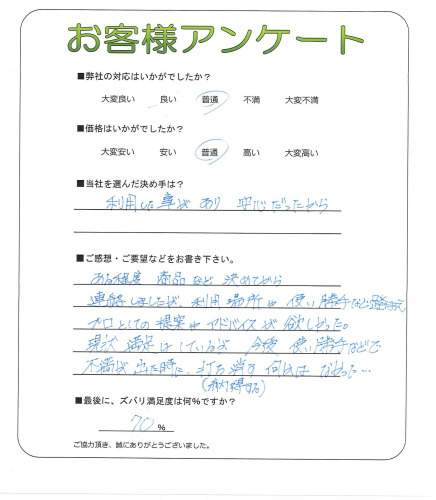 お客様アンケート
■弊社の対応はいかがでしたか？
大変良い 良い 普通 不満 大変不満
■価格はいかがでしたか？
大変安い 安い 普通 高い 大変高い
■当社を選んだ決め手は？
利用した事があり 安心だったから
■ご感想・ご要望などをお書き下さい。
ある程度 商品など 決めてから
連絡しましたが、利用場所や使い勝手など踏まえ
プロとしての提案やアドバイスが欲しかった。
現状 満足はしているが 今後 使い勝手などで
不満が出た時に、打ち消す何かは なかった…
(納得する)
■最後に、ズバリ満足度は何％ですか？
70 %
ご協力頂き、誠にありがとうございました。